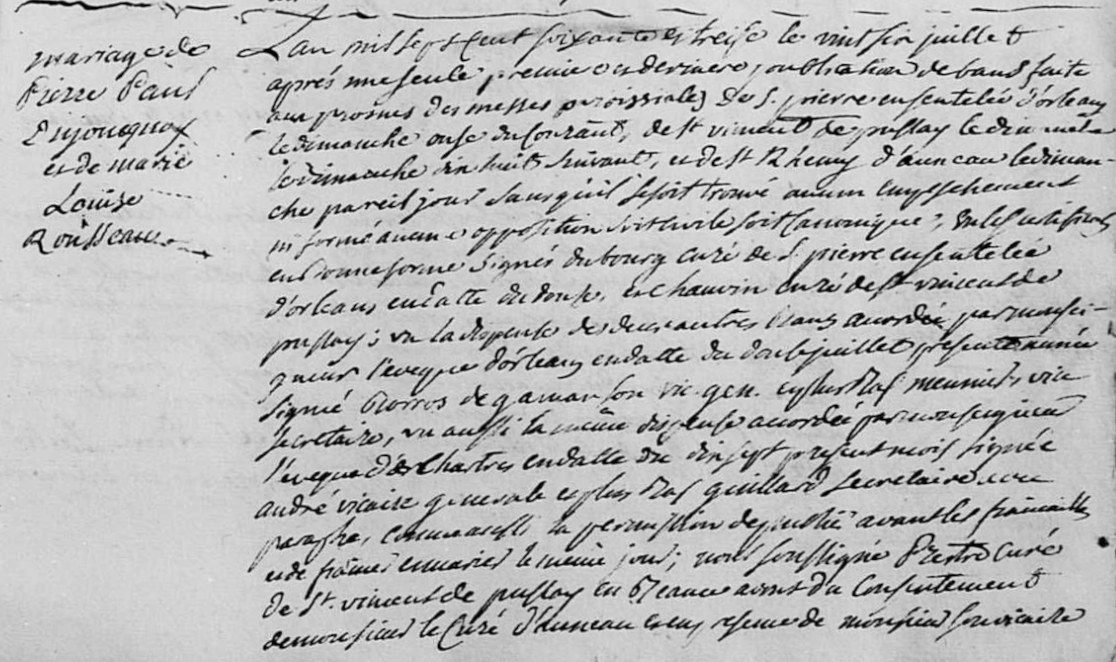 mariage de
Pierre Paul
et de marie
Louise
Rousseau
L'an mil sept cent soixante et treise le vint six juillet
aprés une seule premiere et derniere publication de bans faite
aux prosnes des messes paroissiales de S. pierre ensentelée d'orleans
le dimanche onse du courant, de St vincent de pussay le
le dimanche dix huit suivant, et de St Rhemy d'auneau le diman-
che pareil jour sans qu'il se soit trouvé aucun empeschement
ni formé aucune opposition soit civile soit canonique, vu les certificats
en bonne forme signés dubourg curé de S. pierre ensentelée
d'orleans en datte du douse, et chauvin curé de St vincent de
pussay; vu la dispense des deux autres bans accordée par monsei-
gneur l'eveque d'orleans en datte du douse juillet presente année
signé de vic. gen. et plus bas meunier vic
secretaire, vu aussi la même dispense accordée par monseigneur
l'eveque de Chartres en datte du dix sept present mois signée
andré vicaire generale et plus bas guillard secretaire avec
paraphe, comme aussi la permission de avant les fiancailles
et de fiancer et marier le même jour; nous soussigné Prestre Curé
de St. vincent de pussay en Beauce avons du consentement
de monsieur le Curé d'auneau et en presence de monsieur son vicaire